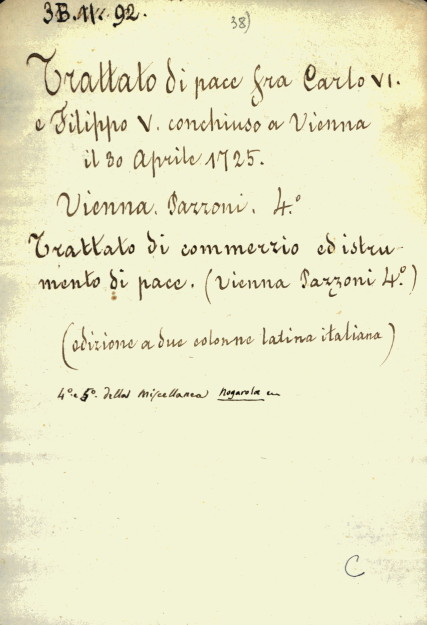 3B. 92.
38)
Trattato di pace fra Carlo VI.
e Filippo V. conchiuso a Vienna
il 30 Aprile 1725.
Vienna. Pazzoni. 4.º
Trattato di commerzio ed istru-
mento di pace. (Vienna Pazzoni 4º.)
(edizione a due colonne latina italiana)
4º. e 5º. della Miscellanea Nogarola
C